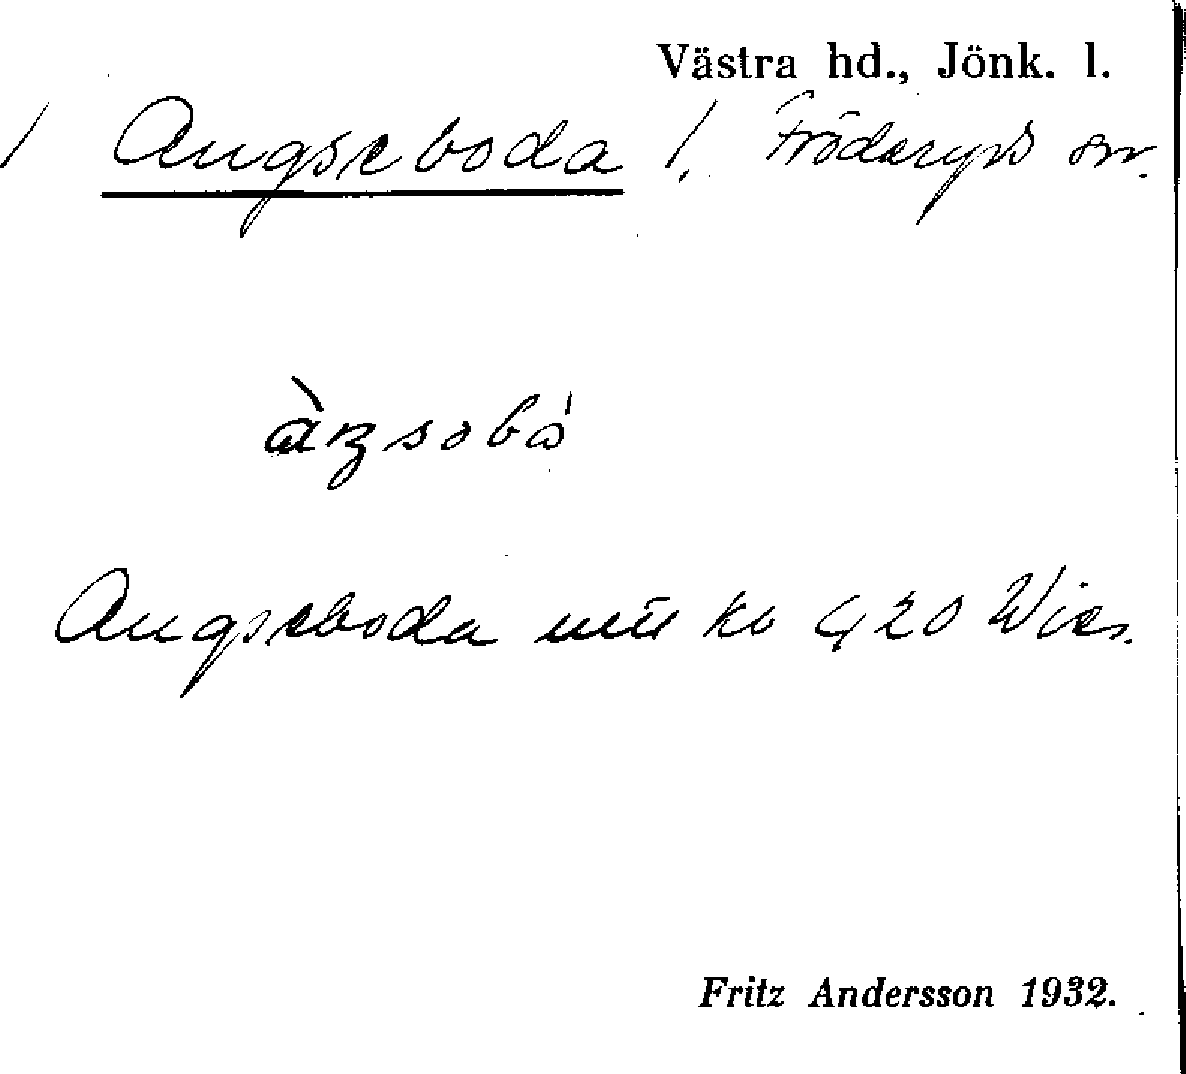 Västra hd., Jönk. l.
/ Angseboda /. Fröderyds sn.
àŋsobó
Angseboda
Fritz Andersson 1932.